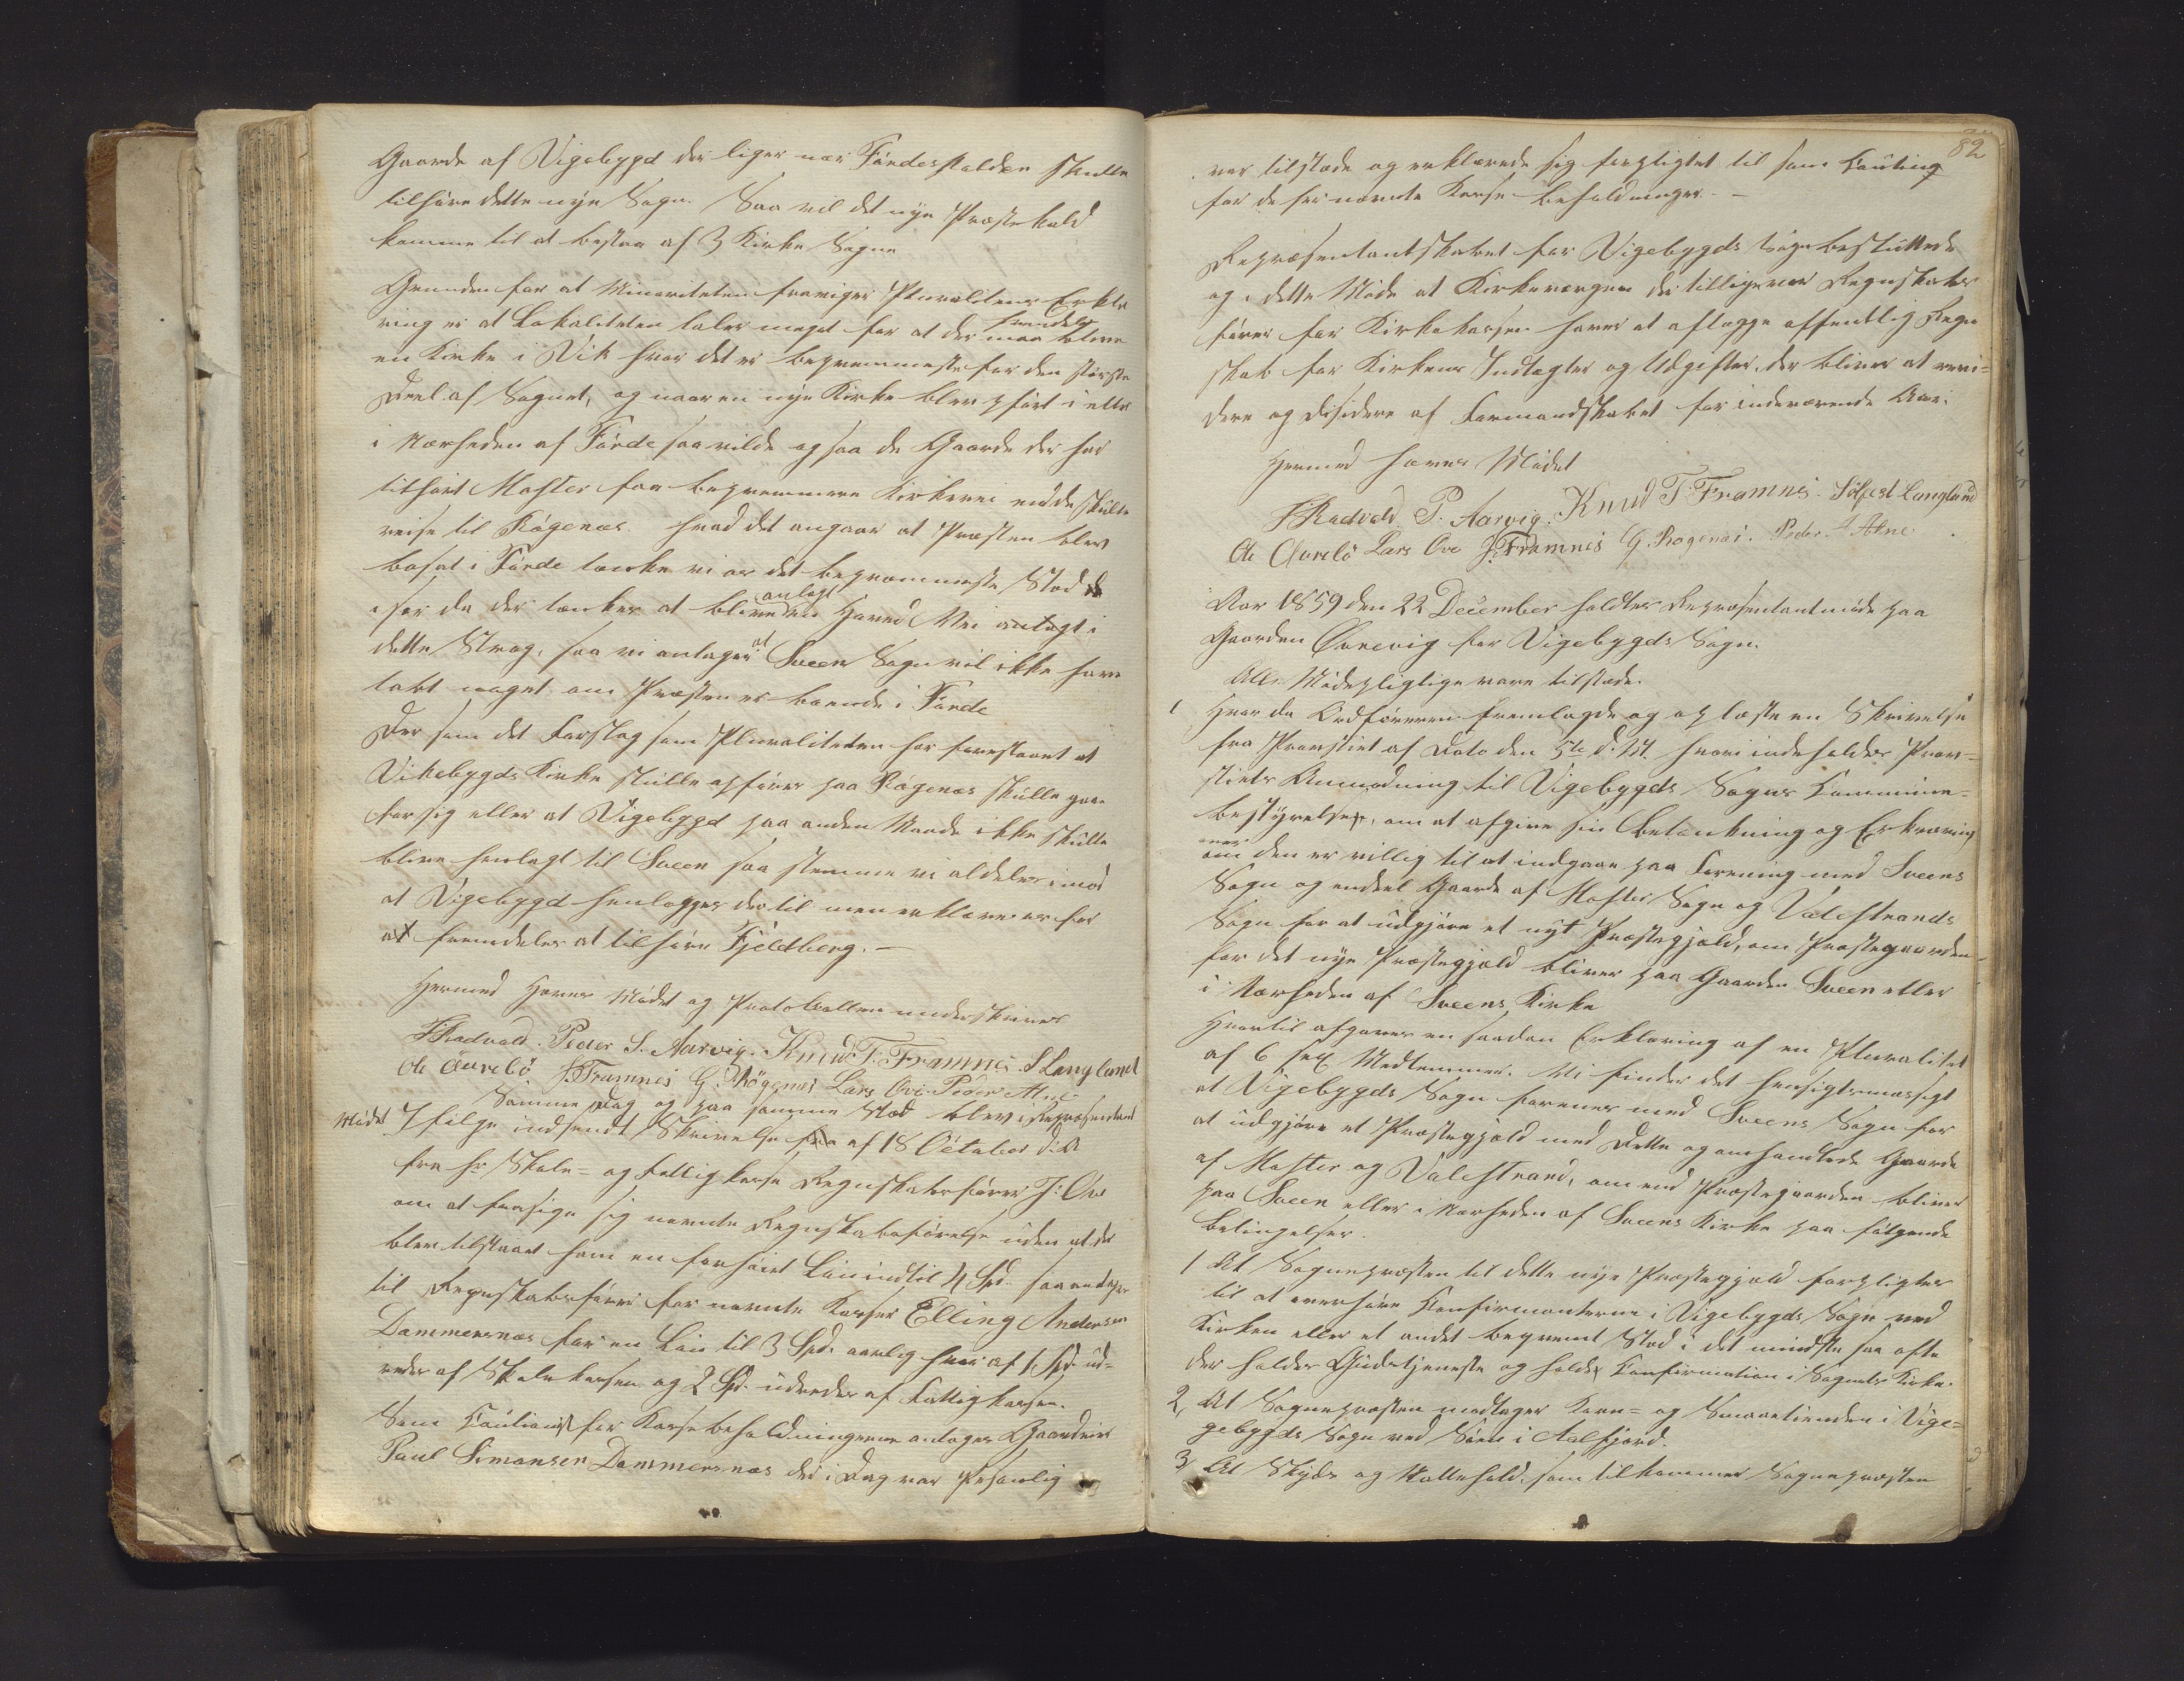 Gaarde af Vigebygd der liger nær Fördespolden skulle
tilhøre dette nye Sogn. Saa vil det nye Præstekald
komme til at bestaa af 3 Kirke Sogne
Grunden for at Minoriteten fraviger Pluralitens Erklæ
ring er at Lokaliteten taler meget for at der maa fremdeles blive
en Kirke i Vik hvor det er beqvemmeste for den største
Deel af Sognet, og naar en nye Kirke blev opført i eller
i Nærheden af Förde saa vilde og saa de Gaarde der har
tilhørt Moster faa beqvemmere Kirkevei end de skulle
reise til Rögenæs hvad det angaar at Præsten blev
bosat i Förde tænke vi er det beqvemmeste Stæd
især da der tænkes at blive anlagt en Hoved Vei antagt i
dette Strøg, saa vi antager at Sveen Sogn vil ikke have
tabt noget om Præsten er boende i Förde
Der som det Forslag som Pluraliteten har forestaaet at
Vikebygds Kirke skulle opføres paa Rögenæs skulle gaa
for sig eller at Vigebygd paa anden Maade ikke skulle
blive henlagt til Sveen saa stemme vi aldeles imod
at Vigebygd henlægges der til men erklærer os for
at fremdeles at tilhøre Fjeldberg. —
Hermed Hæves Mødet og Protokollen underskrives
Radvald. Peder S. Aarvig. Knud T. Framnes S Langland
Ole Aurelö J. Framnes G. Rögenes Lars Öve. Peder Alne
Samme Dag og paa samme Stæd blev i Repræsentant
Mödet Ifölge indsendt Skrivelse fra af 18 October d. A
fra Hr Skole= og Fattigkasse Regnskabsfører J: Öve
om at frasige sig nævnte Regnskabsførelse uden at der
blev tilstaaet ham en forhøiet Løn indtil 4 Spd.
til Regnskabsfører for nævnte Kasser Elling Andersen
Dammersnæs for en Løn til 3 Spd. aarlig hvor af 1 Spd ud=
redes af Skolekassen og 2 Spd. udredes af Fattigkassen.
Som Cautionist for Kassebeholdningerne antages Gaardeier
Poul Simonsen Dammersnæs der i Dag var personlig
82
var tilstæde og erklærede sig forpligtet til som Caution
for de her nævnte Kasse Beholdninger. —
Repræsentantskabet for Vigebygds Sogn besluttede
og i dette Møde at Kirkeværgen der tilligemed Regnskabs
fører for Kirkekassen haver at aflægge offentlig Regn
skab for Kirkens Indtægter og Udgifter, der bliver at revi=
dere og disidere af Formandskabet for indeværende Aar.
Hermed hæves Mødet
Radvald P. Aarvig. Knud T. Framnes. Sölfest Langland
Ole Aurelö Lars Öve J. Framnes G. Rögenes. Peder Alne
Aar 1859 den 22 December holdtes Repræsentantmöde paa
Gaarden Øvrevig for Vigebygds Sogn.
Alle Mödepligtige vare tilstæde.
1 Hvor da Ordføreren fremlagde og oplæste en Skrivelse
fra Provstiet af Dato den 5te d. M. hvori indeholdes Prov=
stiets Anmodning til Vigebygds Sogns Commune=
bestyrelse, om at afgive sin Betænkning og Erklæring
om den er villig til at indgaae paa Forening med Sveens
Sogn og endeel Gaarde af Moster Sogn og Valestrands
Sogn for at udgjøre et nyt Præstegjæld, om Præstegaarden
for det nye Præstegjæld bliver paa Gaarden Sveen eller
i Nærheden af Sveens Kirke
Hvortil afgaves en saadan Erklæring af en Pluralitet
af 6 sex Medlemmer. Vi finder det hensigtsmæssigt
at Vigebygds Sogn forenes med Sveens Sogn for
at udgjøre et Præstegjæld med Dette og omhandlede Gaarde
af Moster og Valestrand, om end Præstegaarden bliver
paa Sveen eller i Nærheden af Sveens Kirke paa følgende
Betingelser.
1 At Sognepræsten til dette nye Præstegjæld forpligtes
til at overhøre Konfirmanterne i Vigebygds Sogn ved
Kirken eller et andet beqvemt Stæd i det mindste saa ofte
der holdes Gudstjeneste og holdes Confirmation i Sognets Kirke.
2, At Sognepræsten modtager Korn= og Smaatienden i Vige=
gebygds Sogn ved Søen i Aalfjord.
3, At Skyds og Natteholdt som tilkommer Sognepræsten